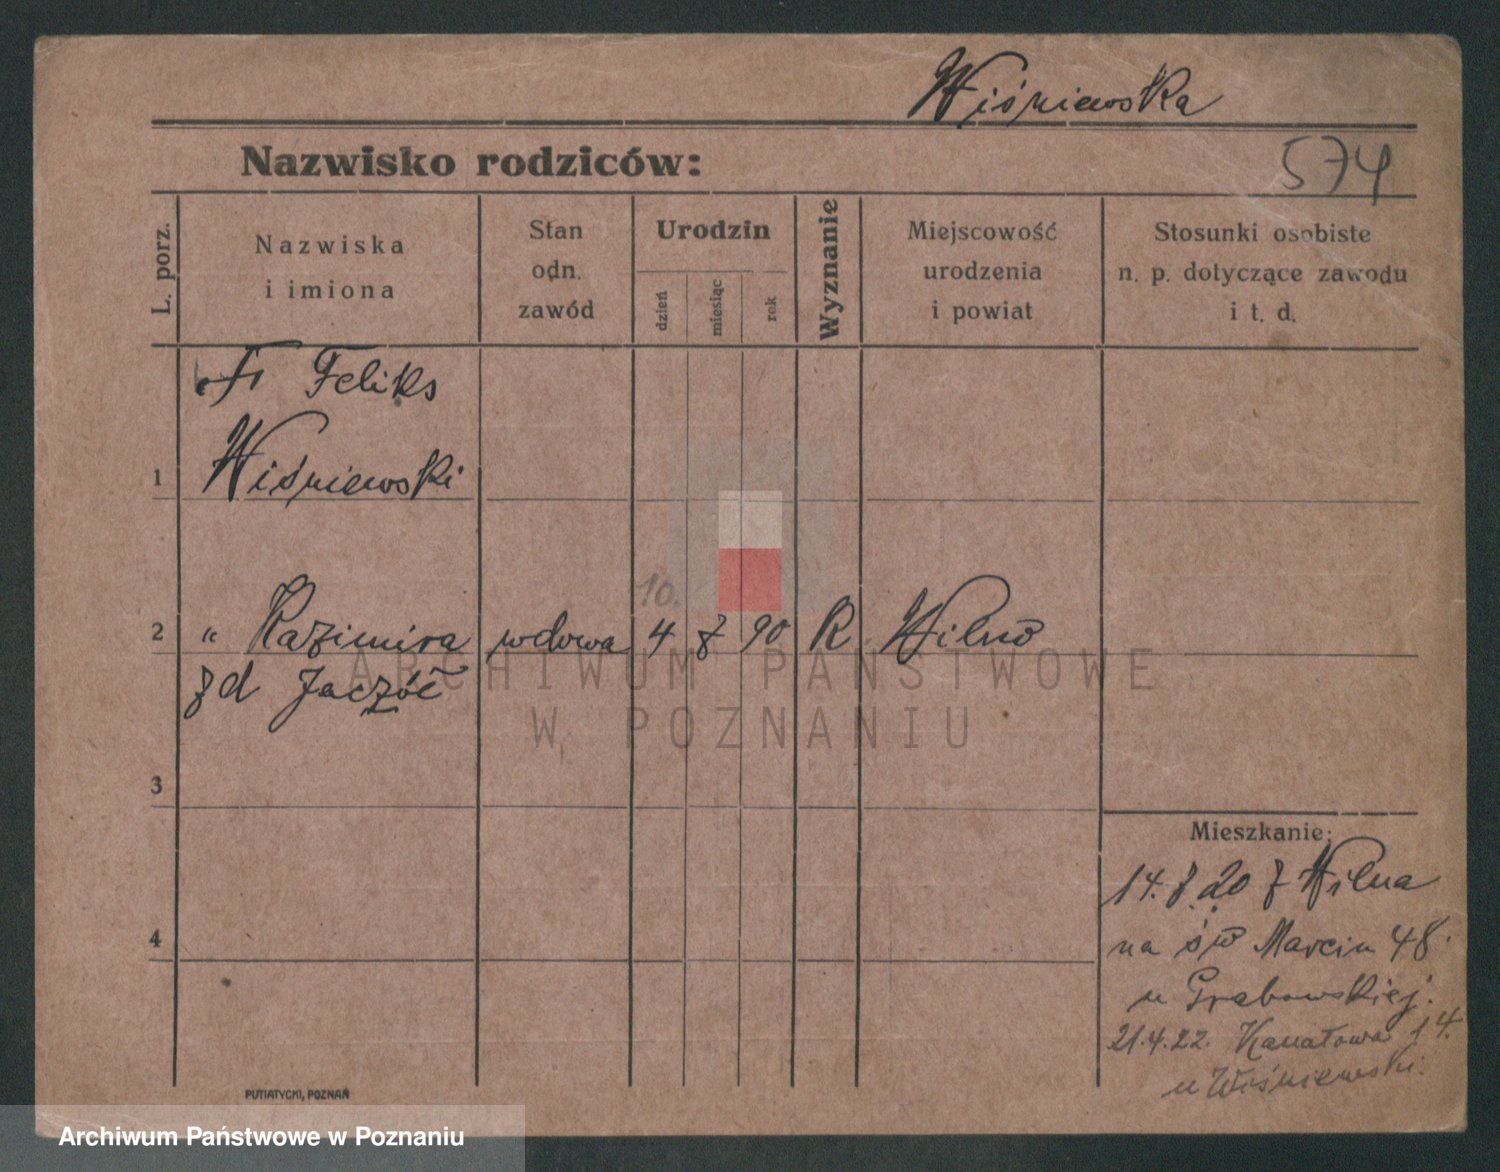 Wiśniewska
Nazwisko rodziców:
574
L. porz.
Nazwiska
i imiona
Stan
odn.
zawód
Urodzin
dzień
miesiąc
rok
Wyznanie
Miejscowość
urodzenia
i powiat
Stosunki osobiste
n. p. dotyczące zawodu
i t. d.
Feliks
1 Wiśniewski
10.
2 " Kazimira wdowa 4 90 R Wilno
zd
3
4
Mieszkanie:
14. 20 z Wilna
na św Marcin 48.
u Grabowskiej.
21.4.22. Kanałowa 14.
u Wiśniewski.
PUTIATYCKI, POZNAŃ
ARCHIWUM PAŃSTWOWE
W POZNANIU
Archiwum Państwowe w Poznaniu